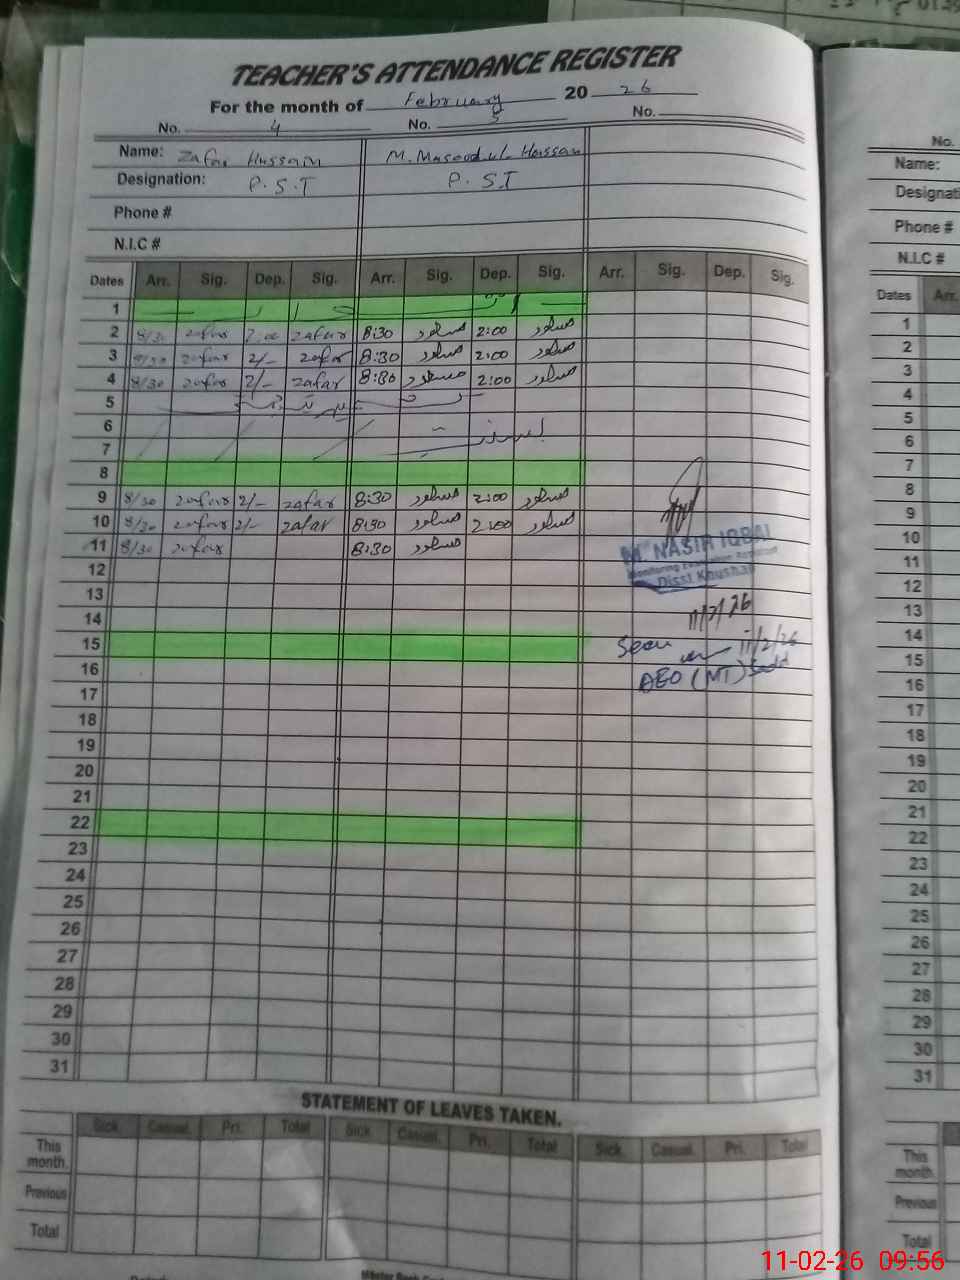 TEACHER'S ATTENDANCE REGISTER
For the month of February 20 26
No. 4 No. 5 No.
Name: Zafar Hussain M. Masood ul Hassan
Designation: P.S.T P.S.T
Phone #
N.I.C #
Dates Arr. Sig. Dep. Sig. Arr. Sig. Dep. Sig. Arr. Sig. Dep. Sig.
1
2 8/30 zafar 2:00 zafar 8:30 مسعود 2:00 مسعود
3 8/30 zafar 2/- zafar 8:30 مسعود 2:00 مسعود
4 8/30 zafar 2/- zafar 8:30 مسعود 2:00 مسعود
5
6
7
8
9 8/30 zafar 2/- zafar 8:30 مسعود 2:00 مسعود
10 8/30 zafar 2/- zafar 8:30 مسعود 2:00 مسعود
11 8/30 zafar 8:30 مسعود
M NASIR IQBAL
Monitoring
Distt
11/2/26
Seen 11/2/26
12
13
14
15
16
17
18
19
20
21
22
23
24
25
26
27
28
29
30
31
STATEMENT OF LEAVES TAKEN.
Sick Casual. Pri. Total Sick. Casual. Pri. Total Sick. Casual. Pri. Total
This month.
Previous
Total
No.
Name:
Phone #
N.I.C #
Dates Arr.
1
2
3
4
5
6
7
8
9
10
11
12
13
14
15
16
17
18
19
20
21
22
23
24
25
26
27
28
29
30
31
This month
Previous
Total
11-02-26 09:56